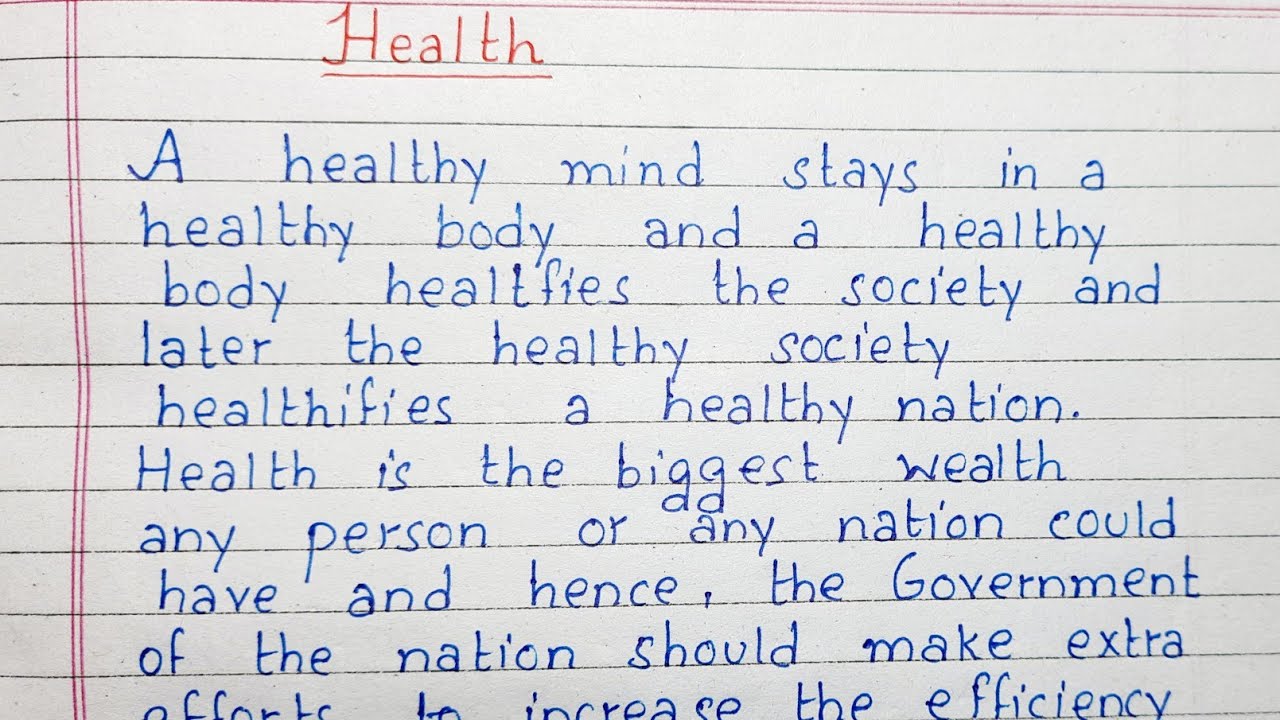 Health
A healthy mind stays in a
healthy body and a healthy
body healtfies the society and
later the healthy society
healthifies a healthy nation.
Health is the biggest wealth
any person or any nation could
have and hence, the Government
of the nation should make extra
efforts to increase the efficiency